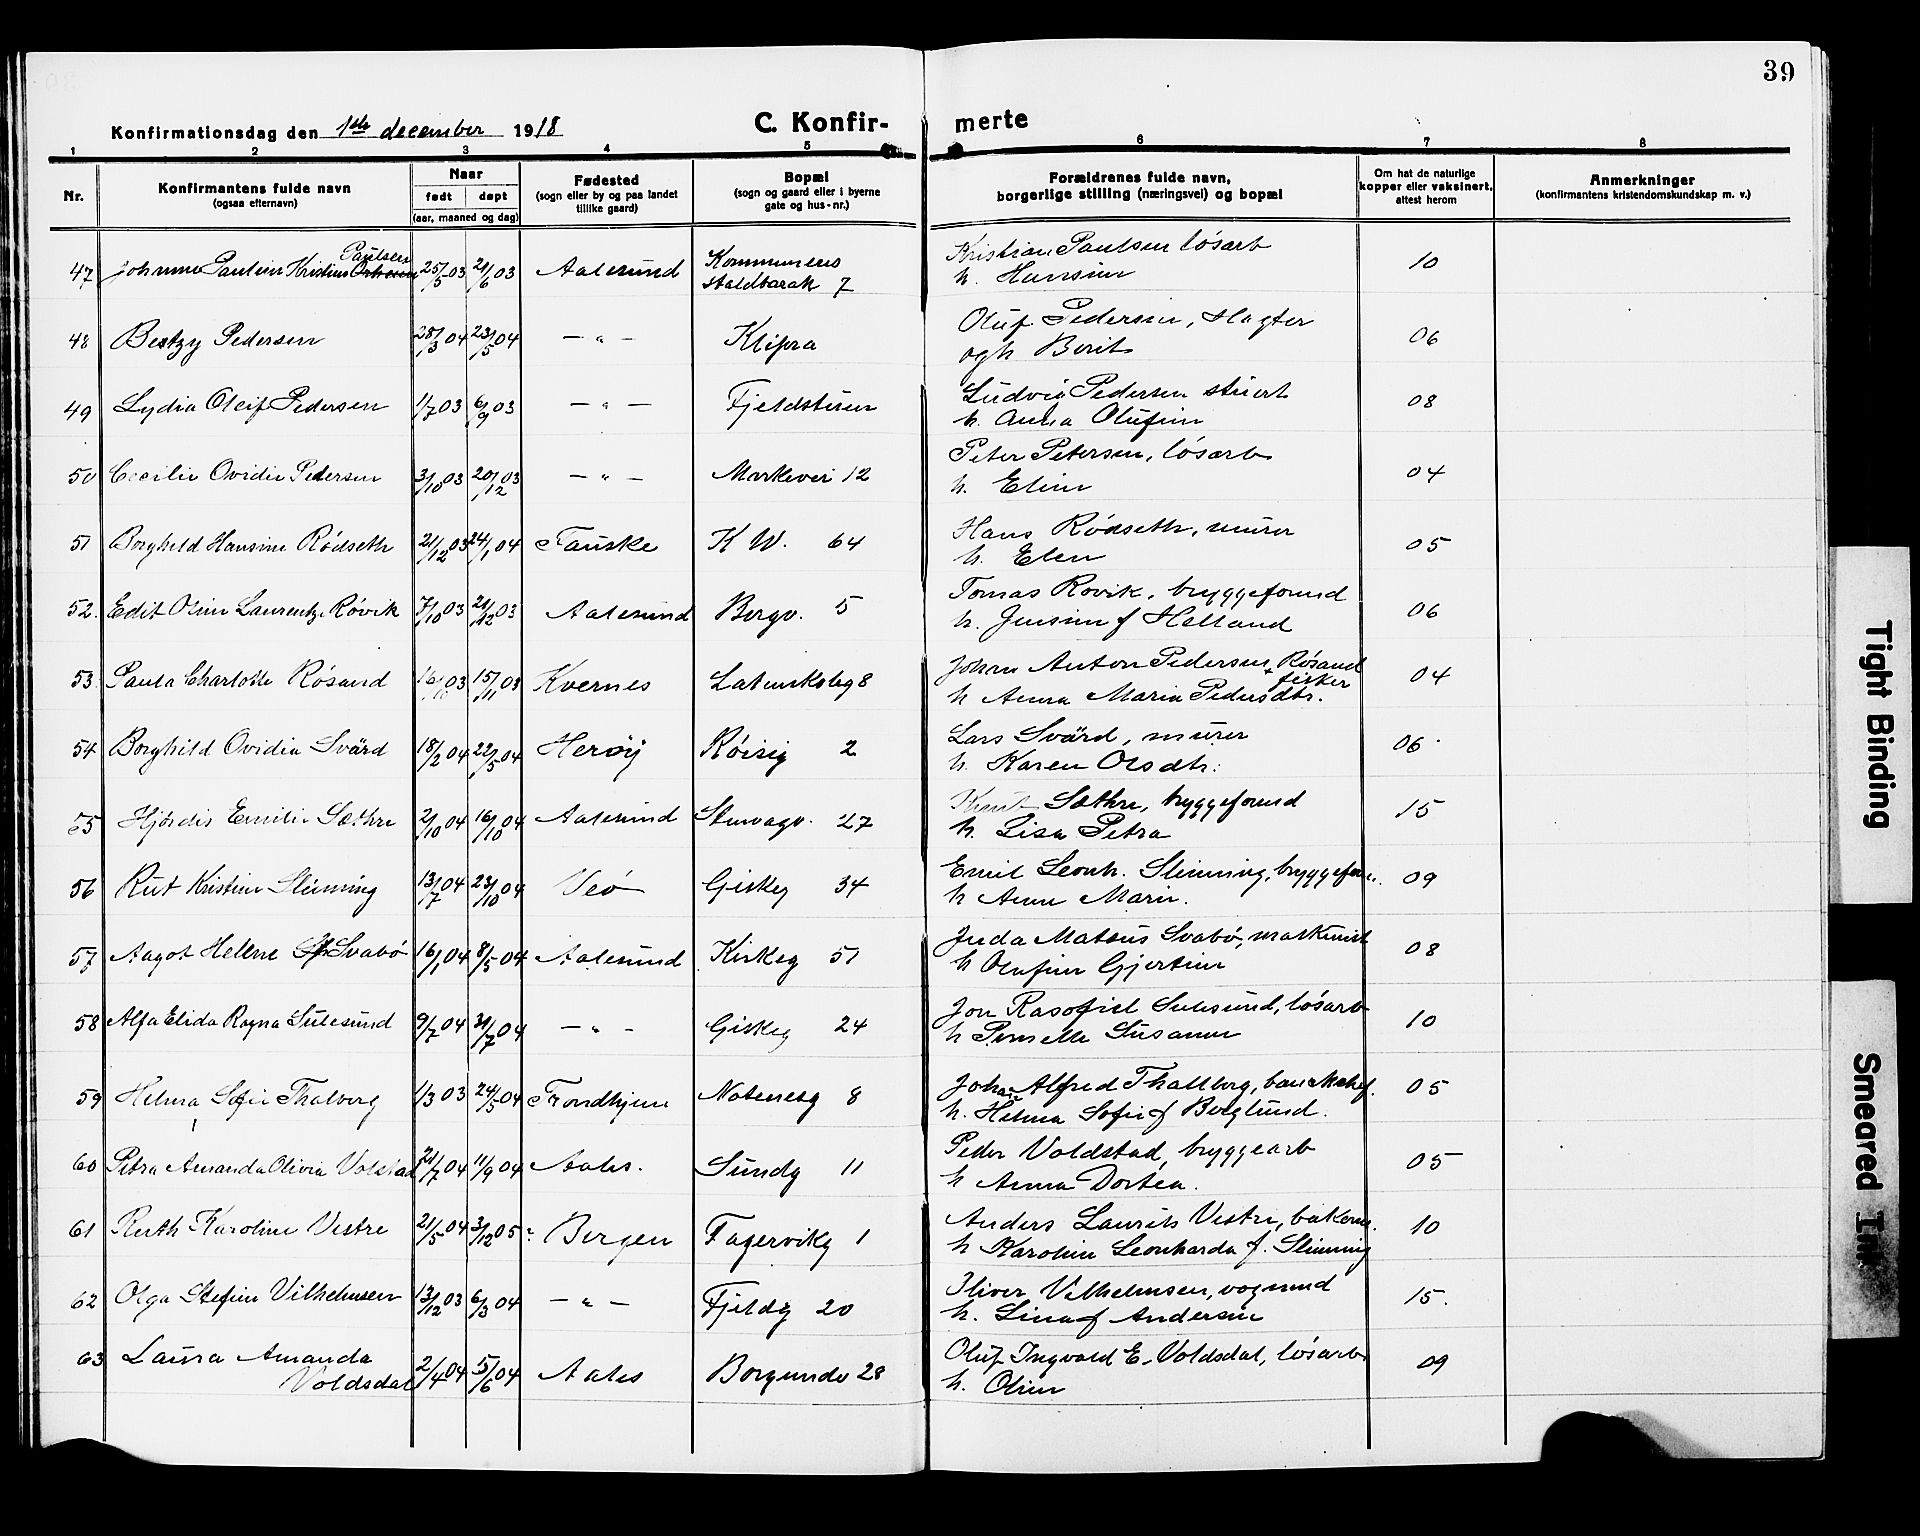 39
Konfirmationsdag den 1ste december 1918
C. Konfirmerte
1 2 3 4 5 6 7 8
Nr.
Konfirmantens fulde navn
(ogsaa efternavn)
Naar
født døpt
(aar, maaned og dag)
Fødested
(sogn eller by og paa landet
tillike gaard)
Bopæl
(sogn og gaard eller i byerne
gate og hus-nr.)
Forældrenes fulde navn,
borgerlige stilling (næringsvei) og bopæl
Om hat de naturlige
kopper eller vaksinert,
attest herom
Anmerkninger
(konfirmantens kristendomskundskap m. v.)
47 Johanne Pauline Kristine Paulsen 25/5 03 21/6 03 Aalesund Kommunens staldbarak 7 Kristian Paulsen løsarb
h. Hansine 10
48 Bertzy Pedersen 28/3 04 23/5 04 — " — Klipra Oluf Pedersen, slagter
ogh Berit 06
49 Lydia Oleif Pedersen 1/7 03 6/9 03 — " — Fjeldstuen Ludvig Pedersen stuert
h. Anna Olufine 08
50 Cecilie Ovidie Pedersen 3/10 03 20/12 03 — " — Markevei 12 Peter Petersen, løsarb
h. Eline 04
51 Borghild Hansine Rødseth 21/12 03 24/1 04 Fauske K W. 64 Hans Rødseth, murer
h. Elen 05
52. Edit Oline Laurentze Røvik 7/10 03 21/12 03 Aalesund Borgv. 5 Tomas Rovik, bryggeformd
h. Jensine f Helland 06
53 Paula Charlotte Røsand 16/ 03 15/11 03 Kvernes Latinskoleg 8 Johan Anton Pedersen Røsand
fisker
h Anna Maria Pedersdtr. 04
54 Borghild Ovidia Svärd 18/2 04 22/5 04 Herøy Røisig 2 Lars Svärd, murer
h. Karen Olsdtr. 06
55 Hjørdis Emilie Sæthre 2/10 04 16/10 04 Aalesund Stenvagv. 27 Knut Sæthre, bryggeformd
h. Lisa Petra 15
56 Rut Kristine Slinning 13/7 04 23/10 04 Veø Giskeg 34 Emil Leonh. Slinning, bryggeform.
h Anne Marie. 09
57 Aagot Helene Svabø 16/1 04 8/5 04 Aalesund Kirkeg 51 Juda Mateus Svabø, maskinist
h Olufine Gjertine 08
58 Alfa Elida Ragna Sulesund 9/7 04 31/7 04 — " — Giskeg 24 Jon Rasofiel Sulesund, løsarb
h Pernelle Susanne 10
59 Helma Sofie Thalberg 1/3 03 24/5 04 Trondhjem Notenesg 8 Johan Alfred Thallberg, bankchef.
h. Helma Sofie f Berglund. 05
60 Petra Amanda Olivia Volstad 21/7 04 11/9 04 Aales. Sundg 11 Peder Voldstad, bryggearb
h Anna Dortea. 05
61 Ruth Karoline Vestre 21/5 04 3/12 05 Bergen Fagervikg 1 Anders Laurits Vestre, bakerm.
h Karoline Leonharda f. Slinning 10
62 Olga Stefine Vilhelmsen 13/12 03 6/3 04 — " — Fjeldg 20 Iliver Vilhelmsen, vognmd
h. Lina f Andersen 15.
63 Laura Amanda
Voldsdal 2/4 04 5/6 04 Aales Borgundv 28 Oluf Ingvald E. Voldsdal, løsarb
h. Oline 09
Tight Binding
Smeared Ink